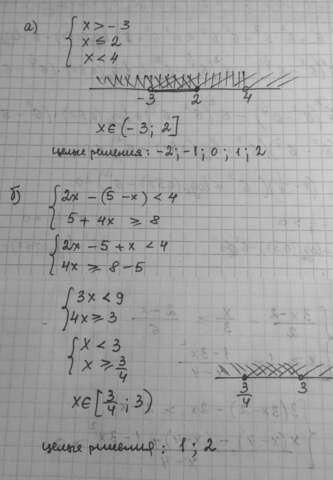 а) { x > -3
x ≤ 2
x < 4
-3 2 4
x∈(-3; 2]
целые решения: -2; -1; 0; 1; 2
б) { 2x - (5 - x) < 4
5 + 4x ≥ 8
{ 2x - 5 + x < 4
4x ≥ 8 - 5
{ 3x < 9
4x ≥ 3
{ x < 3
x ≥ 3/4
3/4 3
x∈[3/4; 3)
целые решения: 1; 2